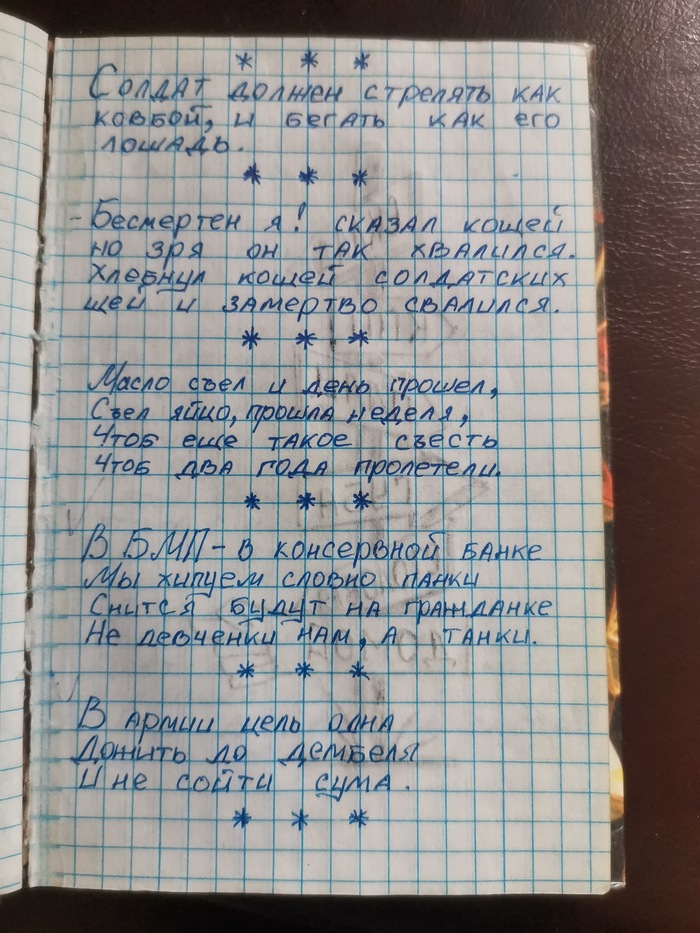 * * *
Солдат должен стрелять как
ковбой, и бегать как его
лошадь.
* * *
- Бесмертен я! сказал кощей
но зря он так хвалился.
Хлебнул кощей солдатских
щей и замертво свалился.
* * *
Масло съел и день прошел,
Съел яйцо, прошла неделя,
Чтоб еще такое съесть
Чтоб два года пролетели.
* * *
В БМП - в консервной банке
Мы хипуем словно панки
Снится будут на гражданке
Не девченки нам, а танки.
* * *
В армии цель одна
Дожить до дембеля
И не сойти сума.
* * *